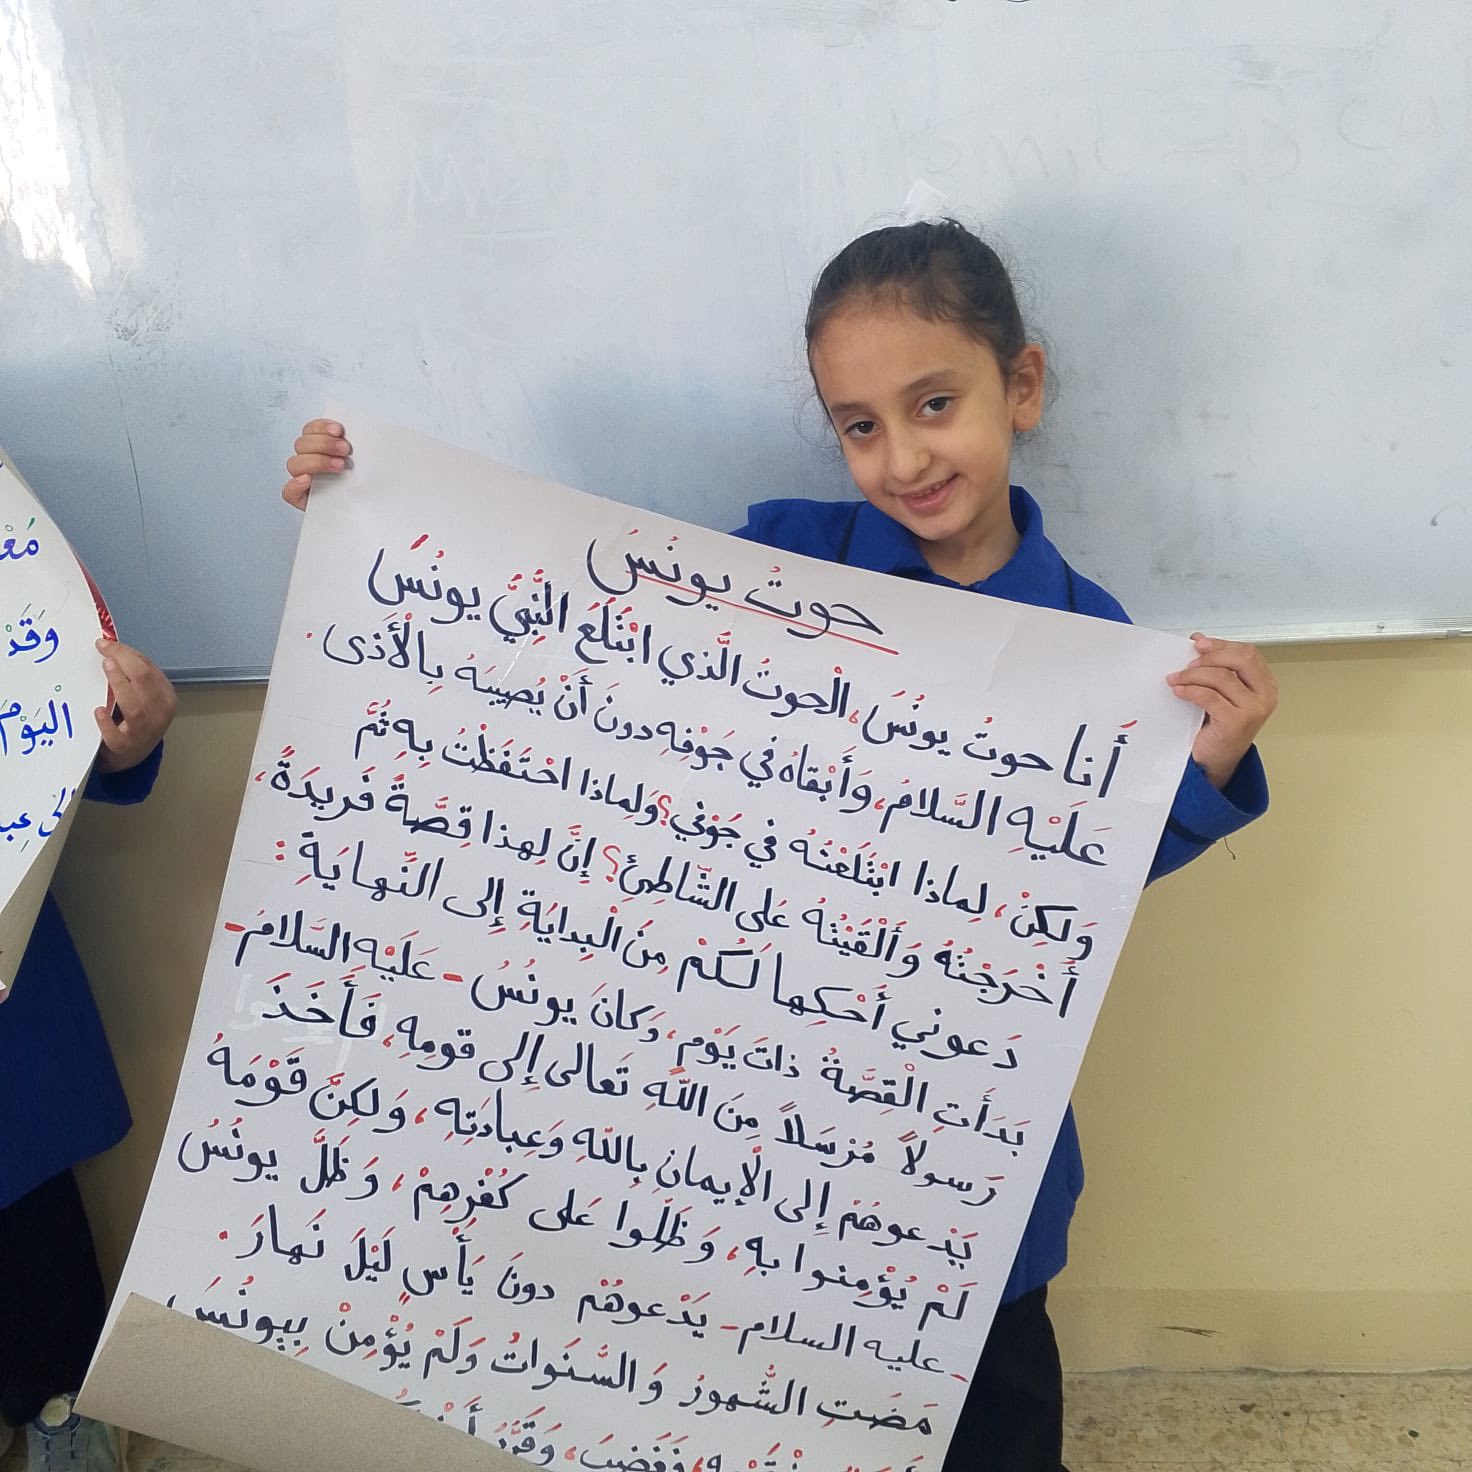 حوتُ يونُسَ
أَنا حوتُ يونُسَ، الْحوتُ الَّذي ابْتَلَعَ النَّبِيَّ يونُسَ
عَلَيْهِ السَّلامُ، وَأَبْقاهُ في جَوْفِهِ دونَ أَنْ يُصيبَهُ بِالْأَذى.
وَلكِنْ، لِماذا ابْتَلَعْتُهُ في جَوْفي؟ وَلِماذا احْتَفَظْتُ بِهِ ثُمَّ
أَخْرَجْتُهُ وَأَلْقَيْتُهُ عَلى الشّاطِئِ؟ إِنَّ لِهذا قِصَّةً فَريدَةً،
دَعوني أَحْكِها لَكُمْ مِنَ الْبِدايَةِ إِلى النِّهايَةِ:
بَدَأَتِ الْقِصَّةُ ذاتَ يَوْمٍ، وَكانَ يونُسُ - عَلَيْهِ السَّلامُ-
رَسولاً مُرْسَلاً مِنَ اللَّهِ تَعالى إِلى قومِهِ، فَأَخَذَ
يَدْعوهُمْ إِلى الْإيمانِ بِاللهِ وَعِبادَتِهِ، وَلكِنَّ قَوْمَهُ
لَمْ يُؤْمِنوا بِهِ، وَظَلّوا عَلى كُفْرِهِمْ، وَظَلَّ يونُسُ
-عليه السلام- يَدْعوهُمْ دونَ يَأْسٍ لَيْلَ نَهارَ.
مَضَتِ الشُّهورُ وَالسَّنَواتُ وَلَمْ يُؤْمِنْ بِيونُسَ
فَغَضِبَ، وَقَرَّرَ
مَعْ
وَقَدْ
الْيَوْمَ